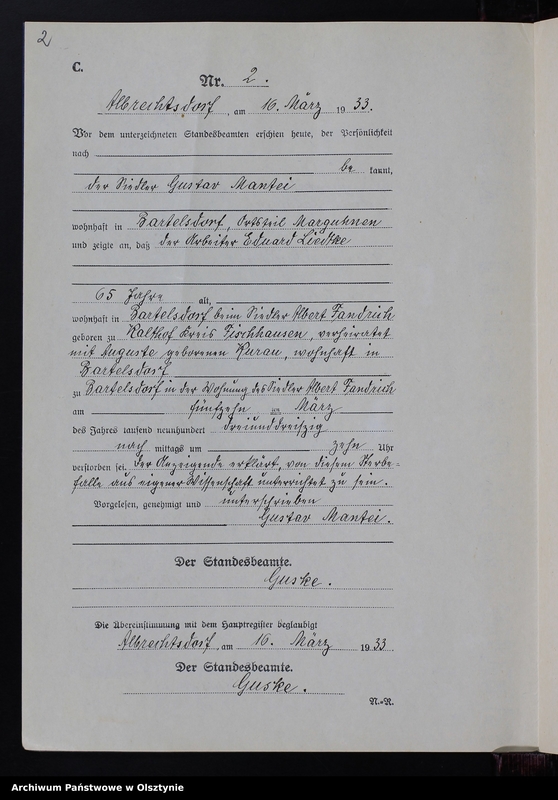 2
C.
Nr. 2.
Albrechtsdorf, am 16. März 1933.
Vor dem unterzeichneten Standesbeamten erschien heute, der Persönlichkeit
nach
be kannt,
der Siedler Gustav Mantei
wohnhaft in Bartelsdorf, Ortsteil Marguhnen
und zeigte an, daß der Arbeiter Eduard Liedtke
65 Jahre alt,
wohnhaft in Bartelsdorf beim Siedler Albert Fandrich
geboren zu Kalthof Kreis Fischhausen, verheiratet
mit Auguste geborenen Kurau, wohnhaft in
Bartelsdorf
zu Bartelsdorf in der Wohnung des Siedler Albert Fandrich
am fünfzehn ten März
des Jahres tausend neunhundert dreiunddreiszig
nach mittags um zehn Uhr
verstorben sei. Der Anzeigende erklärt, von diesem Sterbe=
falle aus eigener Wissenschaft unterrichtet zu sein.
Vorgelesen, genehmigt und unterschrieben
Gustav Mantei.
Der Standesbeamte.
Guske.
Die Übereinstimmung mit dem Hauptregister beglaubigt
Albrechtsdorf, am 16. März 1933
Der Standesbeamte.
Guske.
N.=R.
Archiwum Państwowe w Olsztynie